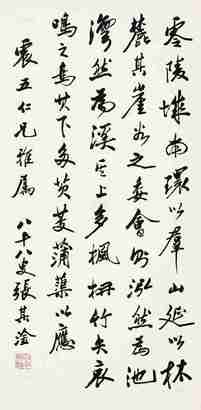 零陵城南環以羣山延以林
麓其崖谷之委會則泓然為池
灣然為溪其上多楓柟竹矢哀
鳴之禽其下多芡芰蒲蕖以應
震五仁兄雅屬 八十八叟張其淦